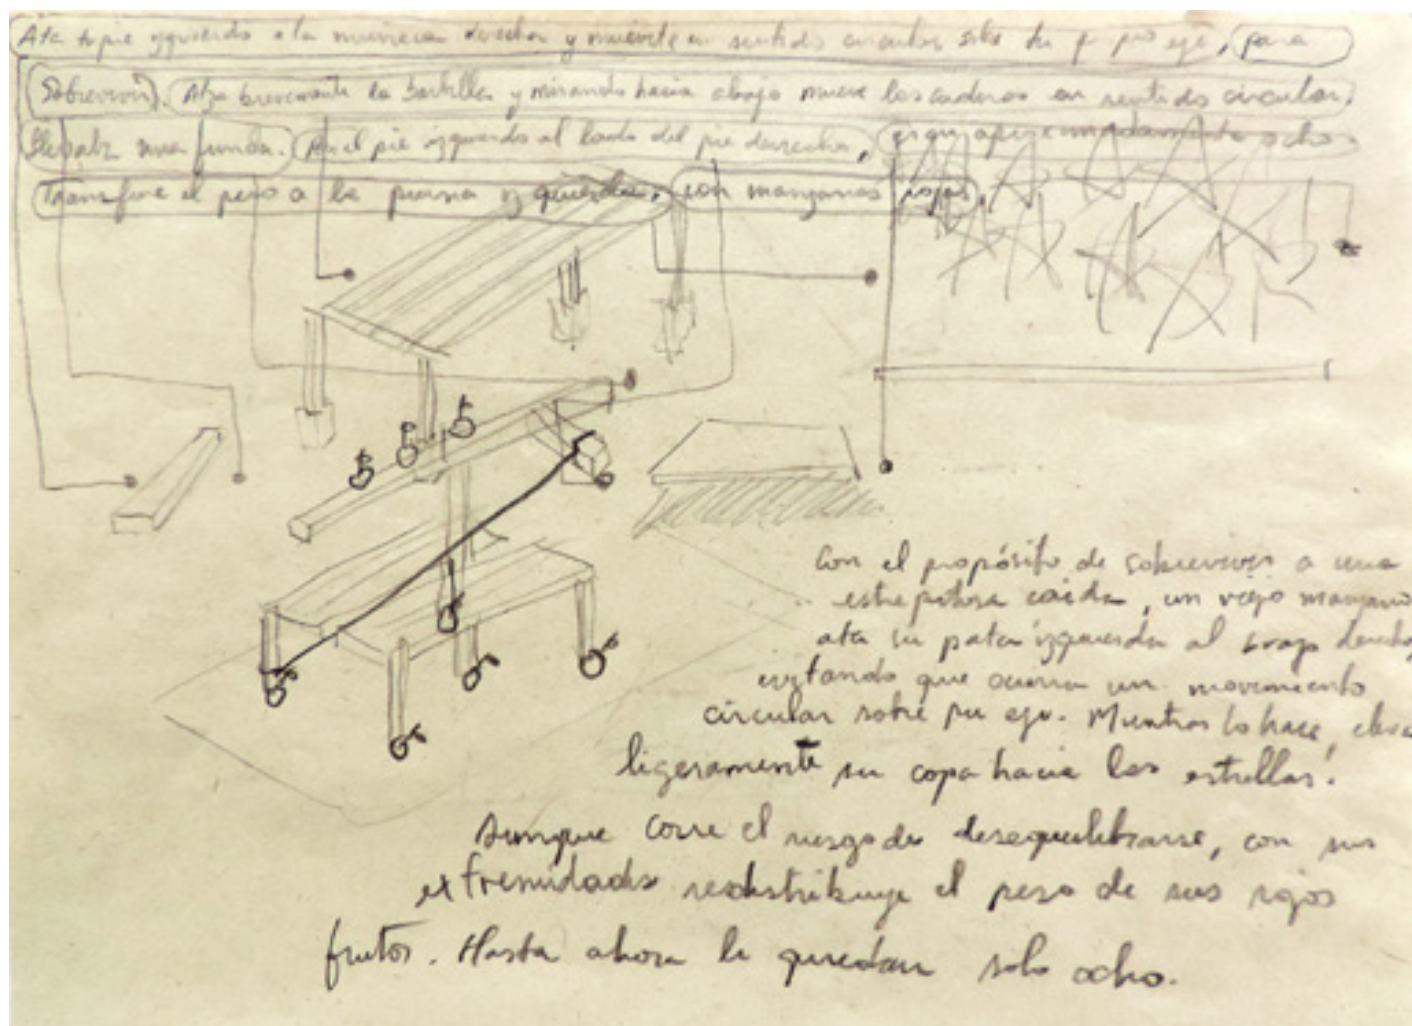 Ata tu pie izquierdo a la muñeca derecha y muévete en sentido circular sobre tu propio eje, para
Sobrevivir. Alza brevemente la barbilla y mirando hacia abajo mueve las caderas en sentido circular.
una funda. el pie izquierdo al lado del pie derecho, aproximadamente ocho.
Transfiere el peso a la pierna izquierda. con manzanas rojas.
Con el propósito de sobrevivir a una
estrepitosa caída, un viejo manzano
ata su pata izquierda al brazo derecho,
evitando que ocurra un movimiento
circular sobre su eje. Mientras lo hace, eleva
ligeramente su copa hacia las estrellas.
Aunque corre el riesgo de desequilibrarse, con sus
extremidades redistribuye el peso de sus rojos
frutos. Hasta ahora le quedan solo ocho.